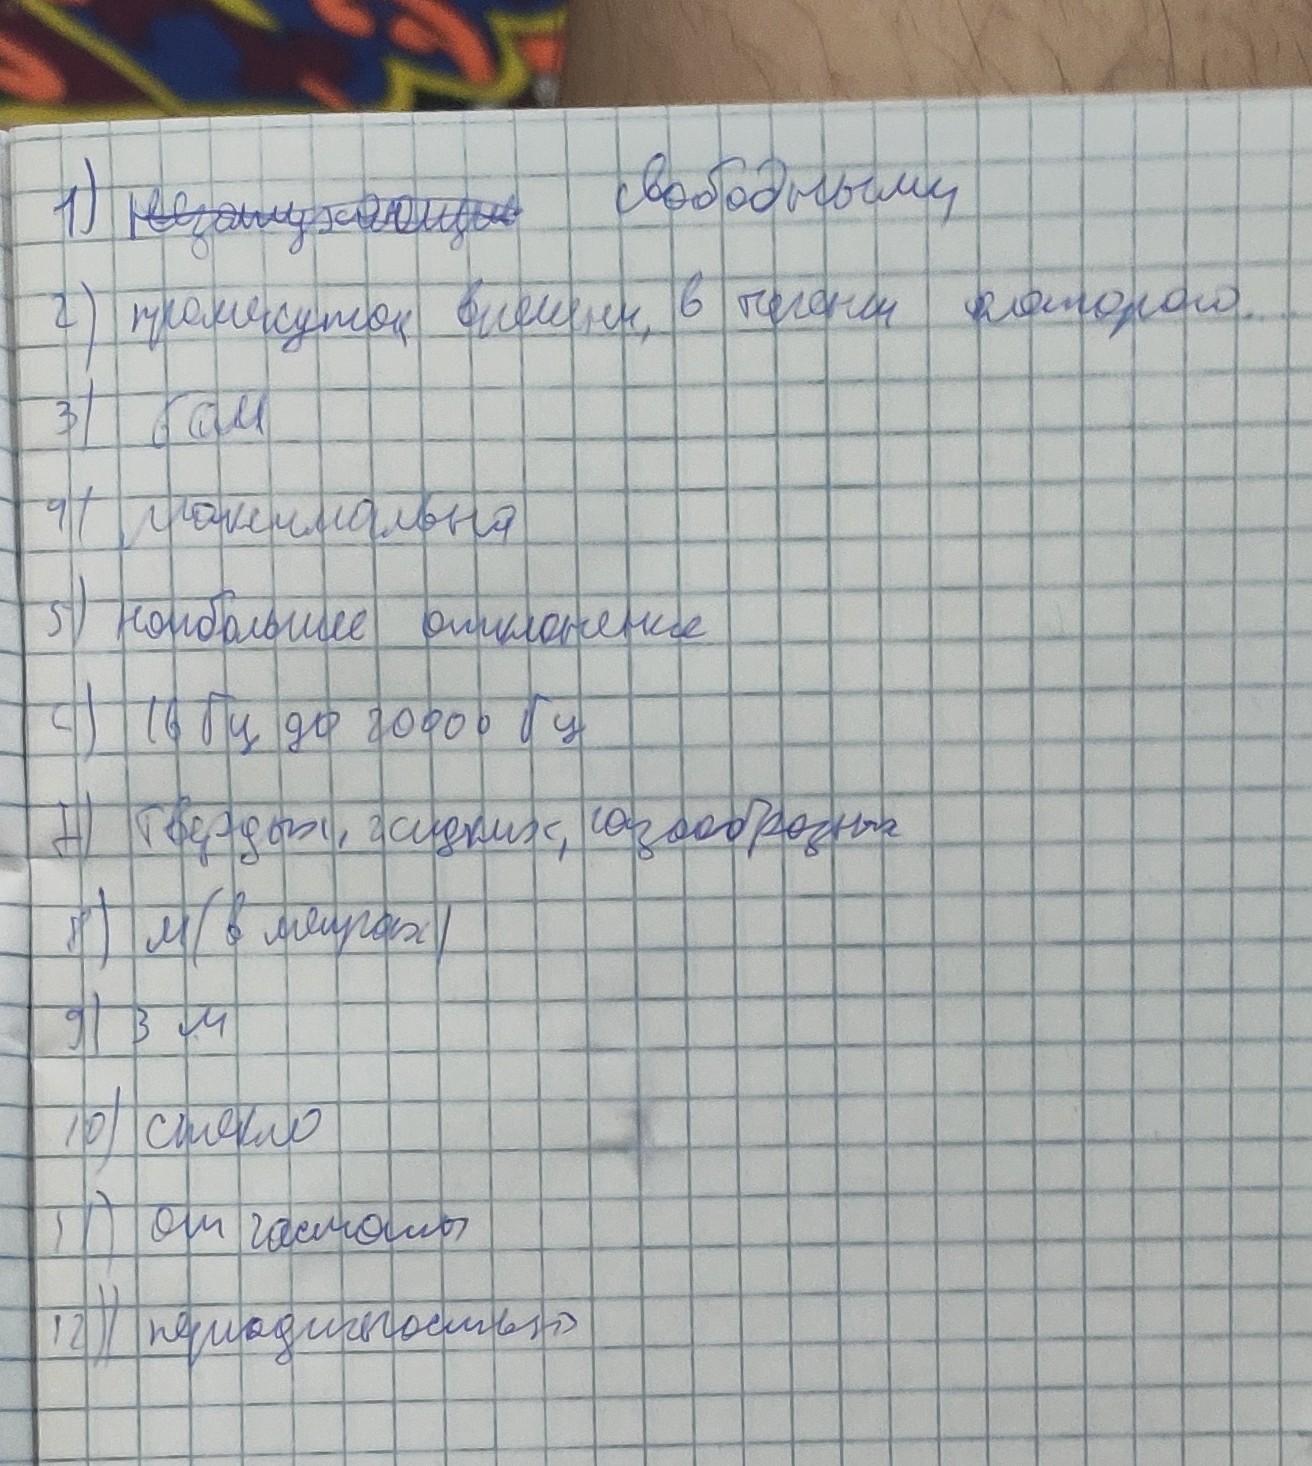 1) незатухающие свободными
2) промежуток времени, в течени которого...
3) 6 см
4) максимальна
5) наибольшее отклонение
6) 16 Гц до 20000 Гц
7) твердых, жидких, газообразных
8) м (в метрах)
9) 3 м
10) стекло
11) от частоты
12) периодичностью